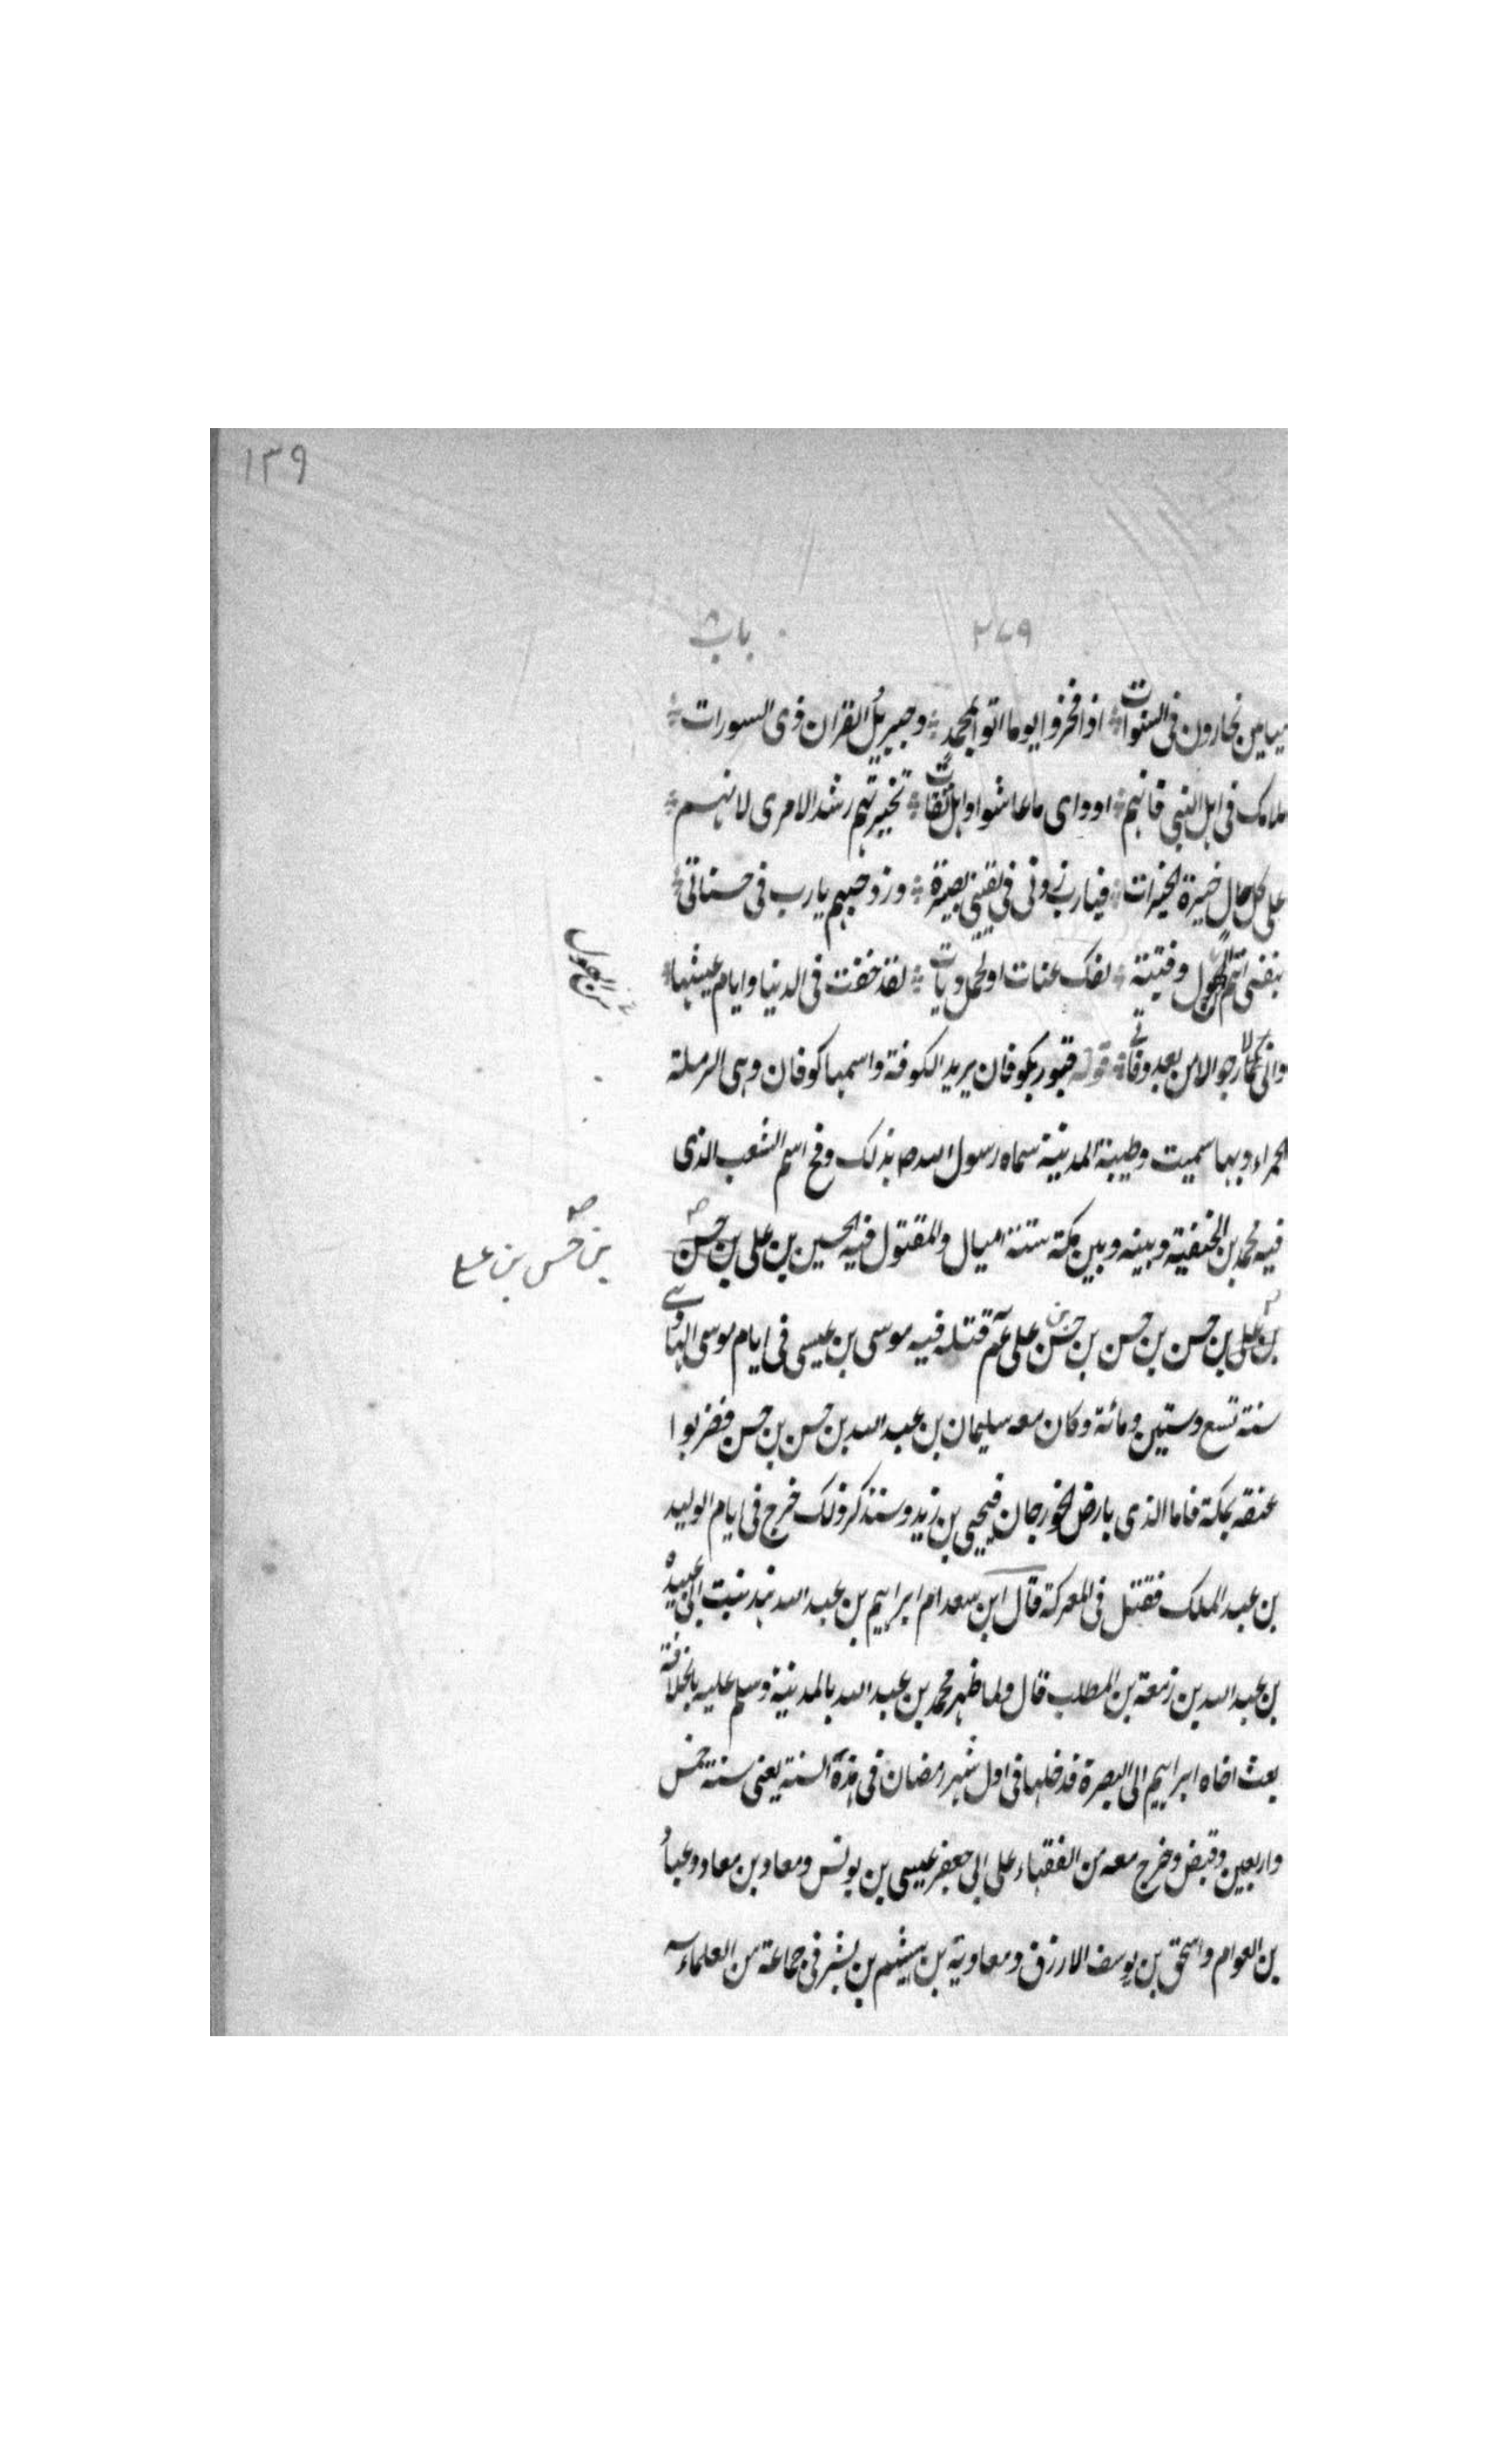 ١٣٩
٢٧٩
باب ٨
ميامين نحارون فى السنوات ۞ اذا فخروا يوما اتوا بمحمد ۞ وجبريل القران ذى السورات ۞
ملامك فى اهل النبى فانهم ۞ اوداى ما عاشوا واهل ثقاتى ۞ تخيرتهم رشد الامرى لانهم ۞
على كل حال خيرة الخيرات ۞ فيارب زدنى فى يقينى بصيرة ۞ وزد حبهم يارب فى حسناتى ۞
بنفسى انتم من كهول وفتية ۞ لفك عنات او لحمل ديات ۞ لقد خفت فى الدنيا وايام عيشها ۞
من كهول
وانى لارجو الامن بعد وفاتى ۞ قوله قبور بكوفان يريد الكوفة واسمها كوفان وهى الرملة
الحمراء وبها سميت وطيبة المدينة سماه رسول الله ص بذلك وفخ اسم الشعب الذى
فيه محمد بن الحنفية وبينه وبين مكة ستة اميال والمقتول فيه الحسين بن على بن حسن
بن حسن بن على
بن على بن حسن بن حسن بن حسن بن على عم قتله فيه موسى بن عيسى فى ايام موسى الهادى
سنة تسع وستين ومائة وكان معه سليمان بن عبد الله بن حسن بن حسن فضربوا
عنقه بمكة فاما الذى بارض الخورجان فيحيى بن زيد وسنذكر ذلك خرج فى ايام الوليد
بن عبد الملك فقتل فى المعركة قال ابن سعد ام ابراهيم بن عبد الله هند بنت ابى عبيدة
بن عبد الله بن زمعة بن المطلب قال ولما ظهر محمد بن عبد الله بالمدينة وسلم عليه بالخلافة
بعث اخاه ابراهيم الى البصرة فدخلها فى اول شهر رمضان فى هذه السنة يعنى سنة خمس
واربعين وقبض وخرج معه من الفقهاء على ابى جعفر عيسى بن يونس ومعاد بن معاد وعباد
بن العوام واسحق بن يوسف الازرق ومعاوية بن هيثم بن بشر فى جماعة من العلماء